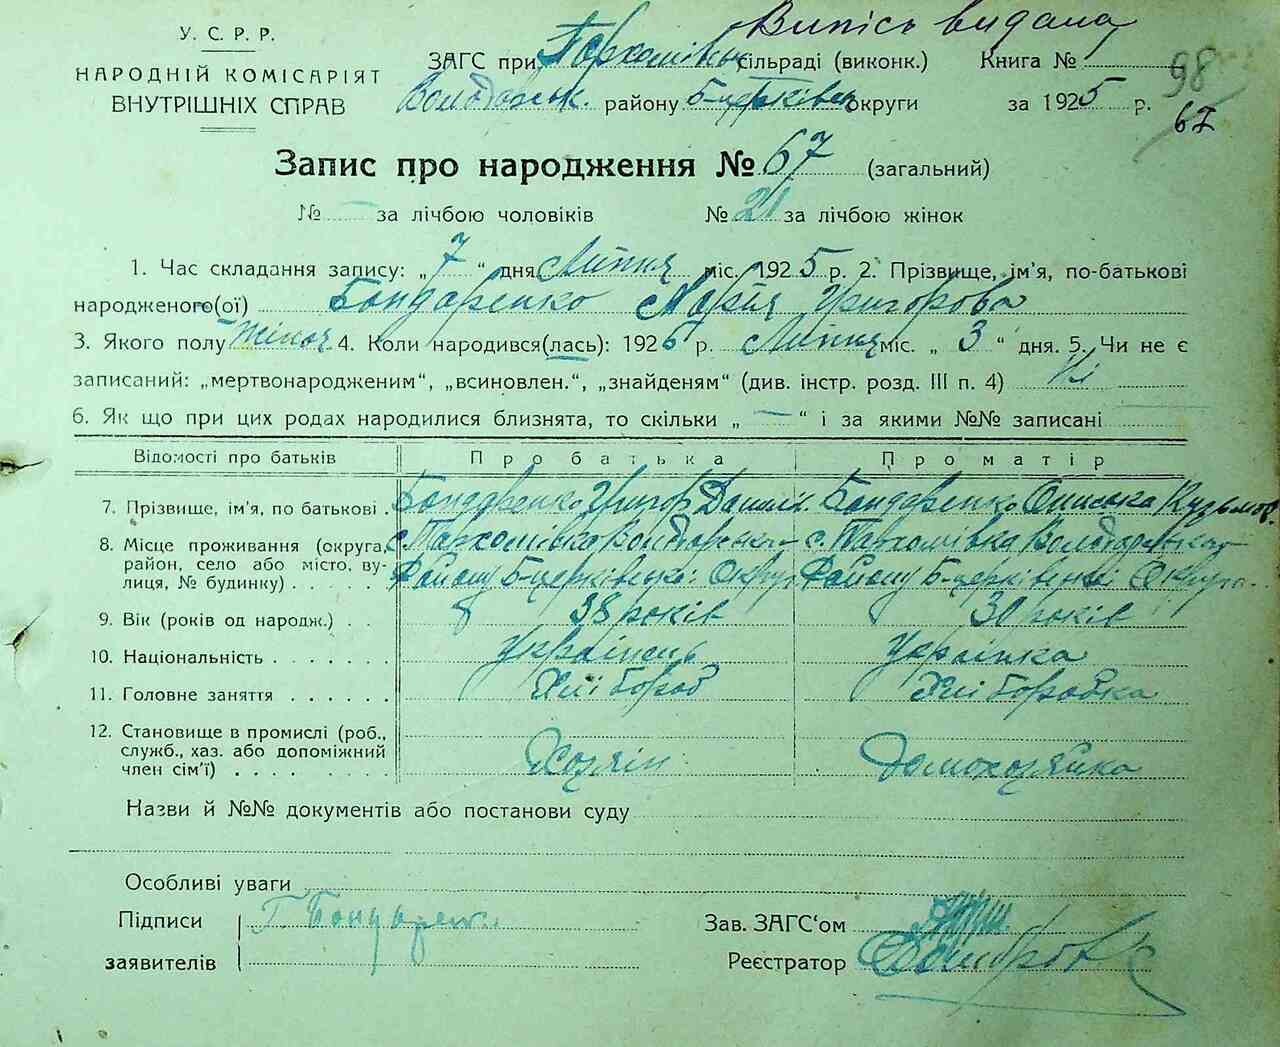 Випісь видана
У. С. Р. Р.
НАРОДНІЙ КОМІСАРІЯТ
ВНУТРІШНІХ СПРАВ
ЗАГС при Пархомівськ сільраді (виконк.) Книга №
98
Володарськ. району Б-церківськ округи за 1925 р.
67
Запис про народження № 67 (загальний)
№ — за лічбою чоловіків № 21 за лічбою жінок
1. Час складання запису: „7“ дня Липня міс. 1925 р. 2. Прізвище, ім’я, по-батькові
народженого(ої) Бондаренко Марія Григорова
3. Якого полу жіноч. 4. Коли народився(лась): 1926 р. Липня міс. „3“ дня. 5. Чи не є
записаний: „мертвонародженим“, „всиновлен.“, „знайденям“ (див. інстр. розд. III п. 4) Ні
6. Як що при цих родах народилися близнята, то скільки „—“ і за якими №№ записані
Відомості про батьків Про батька Про матір
7. Прізвище, ім’я, по батькові . Бондаренко Григор Данил. Бондаренко Ониська Кузьмов.
8. Місце проживання (округа, район, село або місто, вулиця, № будинку) . . . . . с. Пархомівка Володарськ. с. Пархомівка Володарськ.
Району Б-церківської Округи Району Б-церківської Округи
9. Вік (років од народж.) . . 38 років 30 років
10. Національність . . . . . . . Українець Українка
11. Головне заняття . . . . . . Хлібороб Хліборобка
12. Становище в промислі (роб., служб., хаз. або допоміжний член сім’ї) . . . . . . . . Хозяін Домохозяйка
Назви й №№ документів або постанови суду
Особливі уваги
Підписи Г. Бондарен. Зав. ЗАГС‘ом
заявителів Реєстратор